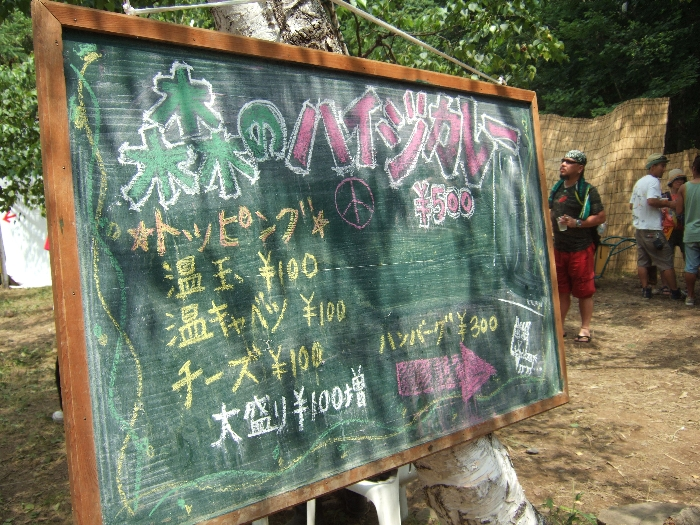 森のハイジカレー
¥500
☆トッピング☆
温玉 ¥100
温キャベツ ¥100
チーズ ¥100
ハンバーグ ¥300
大盛り ¥100増